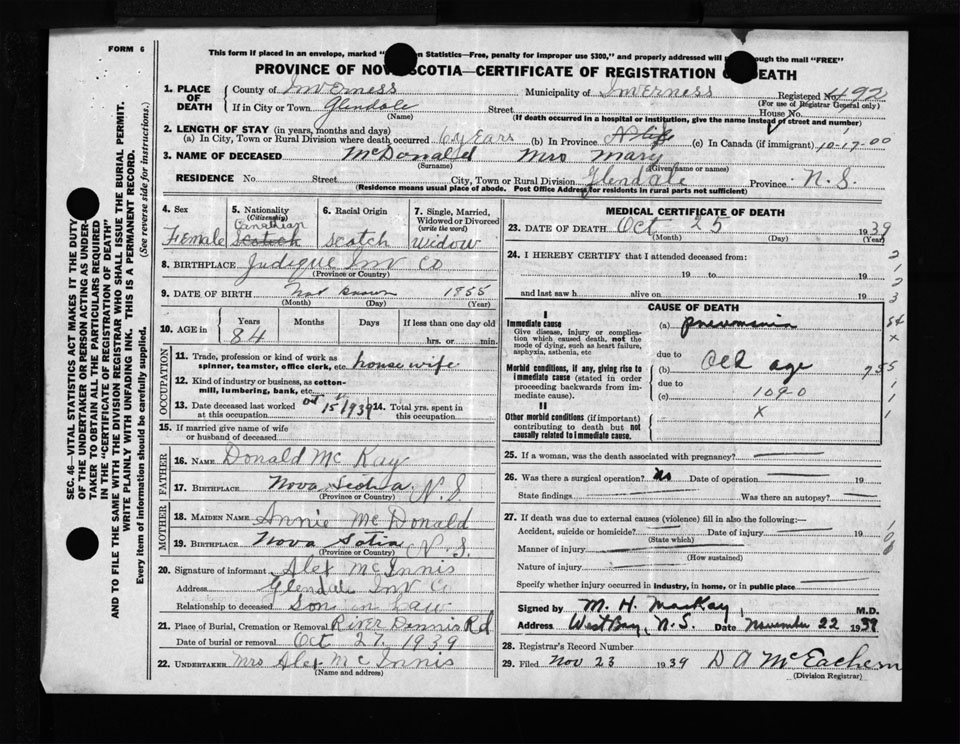 FORM 6
This form if placed in an envelope, marked "on Statistics—Free, penalty for improper use $300," and properly addressed will through the mail "FREE"
PROVINCE OF NOVA SCOTIA—CERTIFICATE OF REGISTRATION OF DEATH
1. PLACE OF DEATH
County of Inverness Municipality of Inverness Registered No. 492
(For use of Registrar General only)
If in City or Town Glendale Street House No.
(Name) (If death occurred in a hospital or institution, give the name instead of street and number)
2. LENGTH OF STAY (in years, months and days)
(a) In City, Town or Rural Division where death occurred 64 Ears (b) In Province Life (c) In Canada (if immigrant) 10-17-00
3. NAME OF DECEASED McDonald Mrs Mary
(Surname) (Given name or names)
RESIDENCE No. Street City, Town or Rural Division Glendale Province N. S.
(Residence means usual place of abode. Post Office Address for residents in rural parts not sufficient)
4. Sex Female
5. Nationality (Citizenship) Canadian Scotch
6. Racial Origin Scotch
7. Single, Married, Widowed or Divorced (write the word) widow
8. BIRTHPLACE Judique Inv Co
(Province or Country)
9. DATE OF BIRTH Not known 1855
(Month) (Day) (Year)
10. AGE in Years 84 Months Days If less than one day old hrs. or min.
OCCUPATION
11. Trade, profession or kind of work as spinner, teamster, office clerk, etc. housewife
12. Kind of industry or business, as cotton-mill, lumbering, bank, etc.
13. Date deceased last worked at this occupation Oct 15/1939 14. Total yrs. spent in this occupation
15. If married give name of wife or husband of deceased
FATHER
16. NAME Donald McKay
17. BIRTHPLACE Nova Scotia N. S.
(Province or Country)
MOTHER
18. MAIDEN NAME Annie McDonald
19. BIRTHPLACE Nova Sotia N. S.
(Province or Country)
20. Signature of informant Alex McInnis
Address Glendale Inv Co
Relationship to deceased Son in Law
21. Place of Burial, Cremation or Removal River Dennis Rd
Date of burial or removal Oct 27. 1939
22. UNDERTAKER Mrs Alex McInnis
(Name and address)
MEDICAL CERTIFICATE OF DEATH
23. DATE OF DEATH Oct 25 1939
(Month) (Day) (Year)
24. I HEREBY CERTIFY that I attended deceased from:
19 to 19
and last saw h alive on 19
CAUSE OF DEATH
I
Immediate cause
Give disease, injury or complication which caused death, not the mode of dying, such as heart failure, asphyxia, asthenia, etc
(a) pneumonia
due to
Morbid conditions, if any, giving rise to immediate cause (stated in order proceeding backwards from immediate cause).
(b) Old age
due to
(c) 109-0
II
Other morbid conditions (if important) contributing to death but not causally related to immediate cause.
X
25. If a woman, was the death associated with pregnancy?
26. Was there a surgical operation? No Date of operation 19
State findings Was there an autopsy?
27. If death was due to external causes (violence) fill in also the following:—
Accident, suicide or homicide? Date of injury 19
(State which)
Manner of injury
(How sustained)
Nature of injury
Specify whether injury occurred in industry, in home, or in public place
Signed by M. H. MacKay, M.D.
Address West Bay, N. S. Date November 22 1939
28. Registrar's Record Number
29. Filed Nov 23 1939 D A McEachern
(Division Registrar)
SEC. 46—VITAL STATISTICS ACT MAKES IT THE DUTY
OF THE UNDERTAKER OR PERSON ACTING AS UNDER-
TAKER TO OBTAIN ALL THE PARTICULARS REQUIRED
IN THE "CERTIFICATE OF REGISTRATION OF DEATH"
AND TO FILE THE SAME WITH THE DIVISION REGISTRAR WHO SHALL ISSUE THE BURIAL PERMIT.
WRITE PLAINLY WITH UNFADING INK. THIS IS A PERMANENT RECORD.
Every item of information should be carefully supplied. (See reverse side for instructions.)